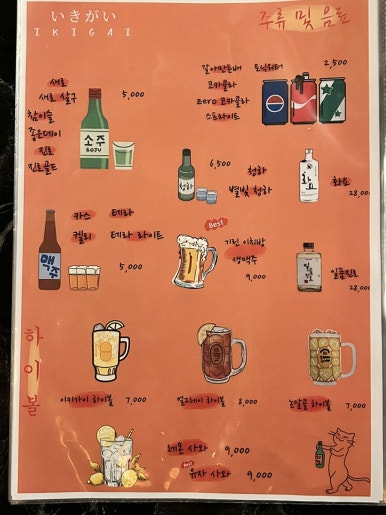 いきがい
IKIGAI
주류 및 음료
새로
새로 살구
참이슬
좋은데이
진로
진로골드
5,000
소주
SOJU
갈아만든배 토닉워터
코카콜라
zero 코카콜라
스프라이트
2,500
6,500
청하
별빛 청하
청하
화요
화요
28,000
카스 테라
켈리 테라 라이트
5,000
맥주
Best
기린 이치방
생맥주
9,000
일품진로
28,000
하이볼
이키가이 하이볼 7,000
얼그레이 하이볼 8,000
논알콜 하이볼 7,000
레몬 사와 9,000
유자 사와 9,000